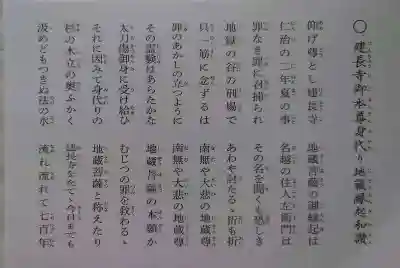 ○ 建長寺御本尊身代り地蔵縁起和讃
仰げ尊とし建長寺　地蔵菩薩の御縁起は
仁治の二年夏の事　名越の住人左衛門は
罪なき罪に召捕られ　その名を聞くも恐しき
地獄の谷の刑場で　あわや討たるゝ折も折
只一筋に念ずるは　南無や大悲の地蔵尊
罪のあかしの立つように　南無や大悲の地蔵尊
その霊験はあらたかな　地蔵菩薩の本願か
太刀傷御身に受け給ひ　むじつの罪を救わるゝ
それに因みて身代りの　地蔵菩薩と称えたり
杉の木立の奥ふかく　今日までも
汲めどもつきぬ法の水　流れ流れて七百年